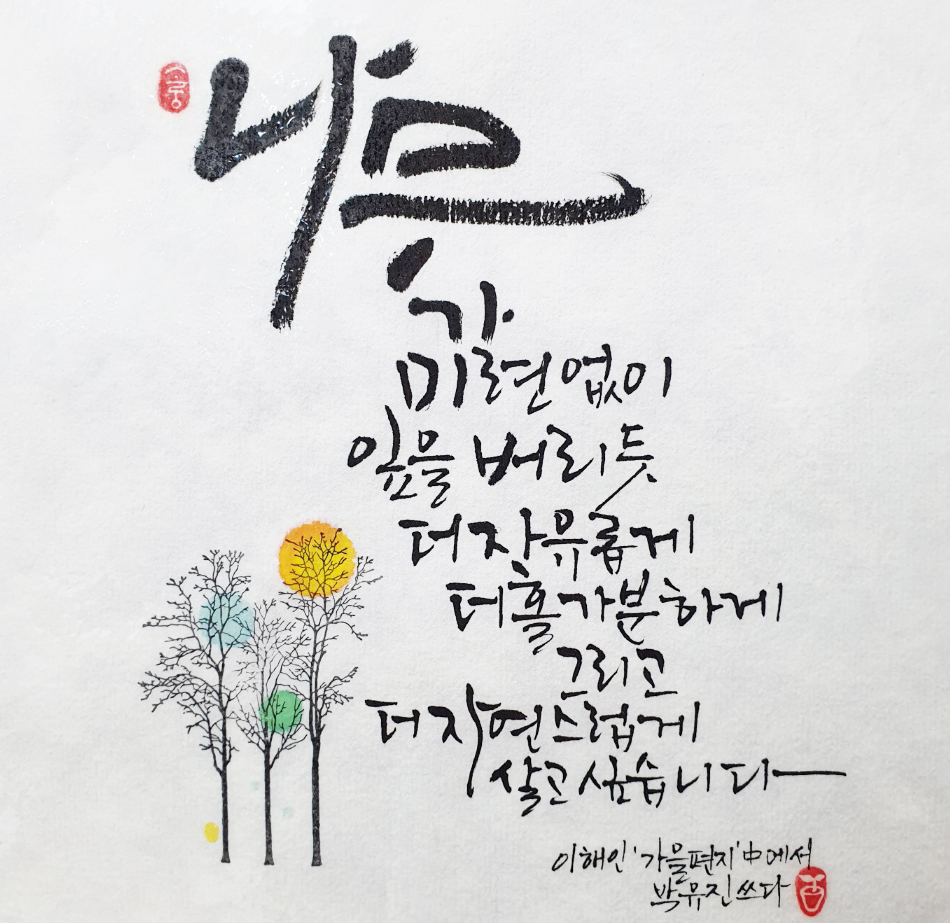 나무
가
미련없이
잎을 버리듯
더 자유롭게
더 홀가분하게
그리고
더 자연스럽게
살고 싶습니다
이해인 '가을편지' 中에서
박유진 쓰다